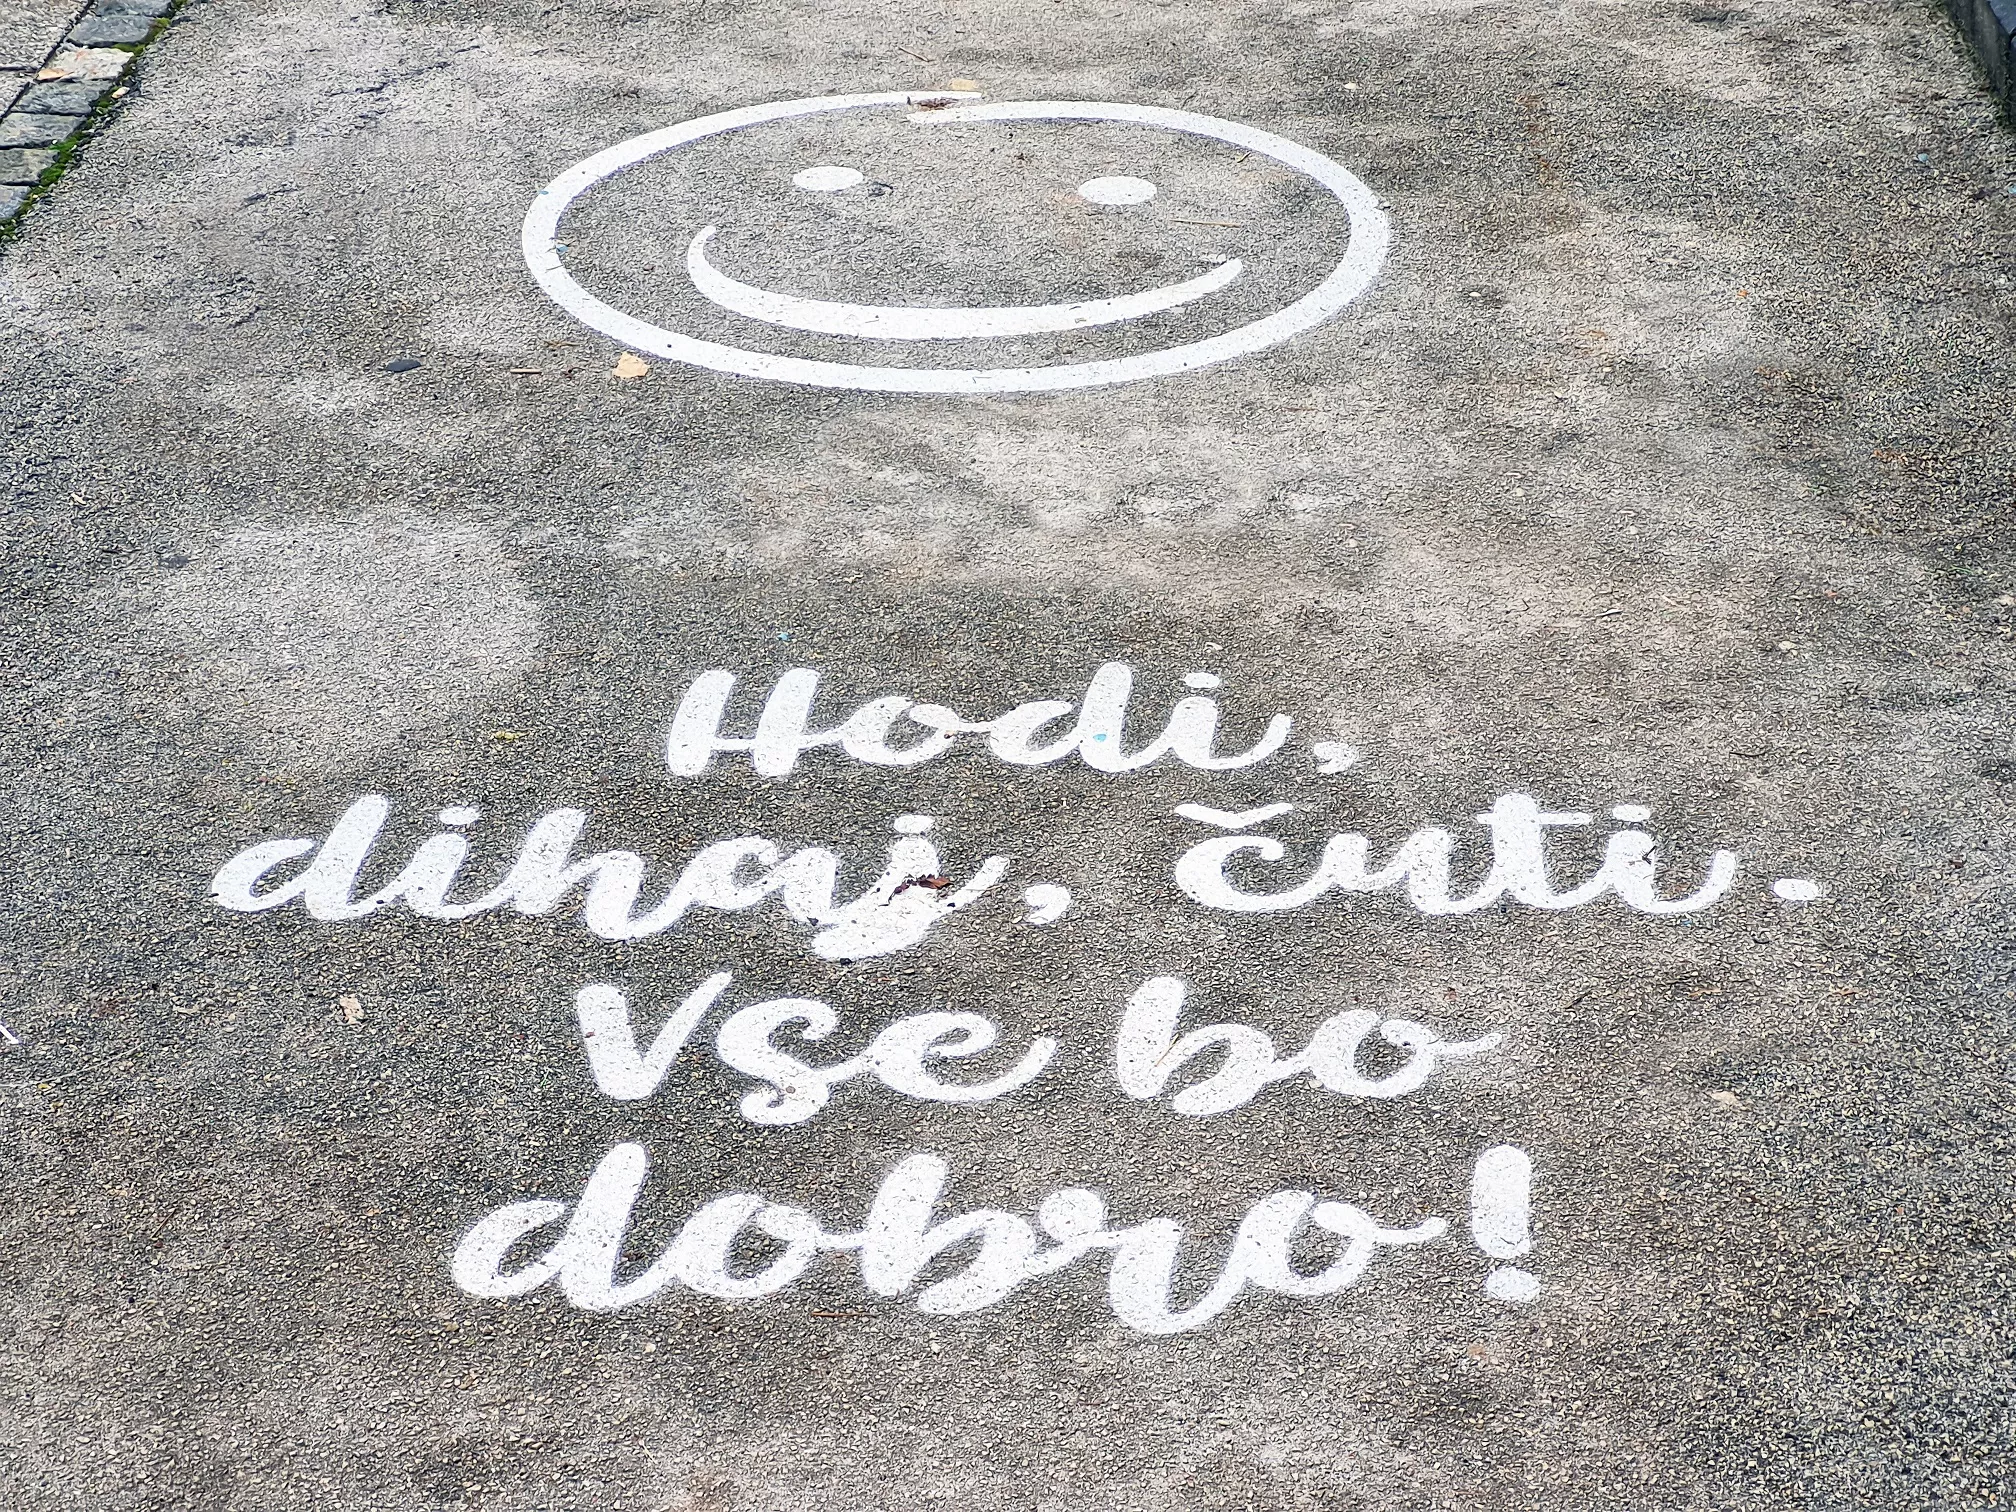 Hodi,
dihaj, čuti.
Vse bo
dobro!